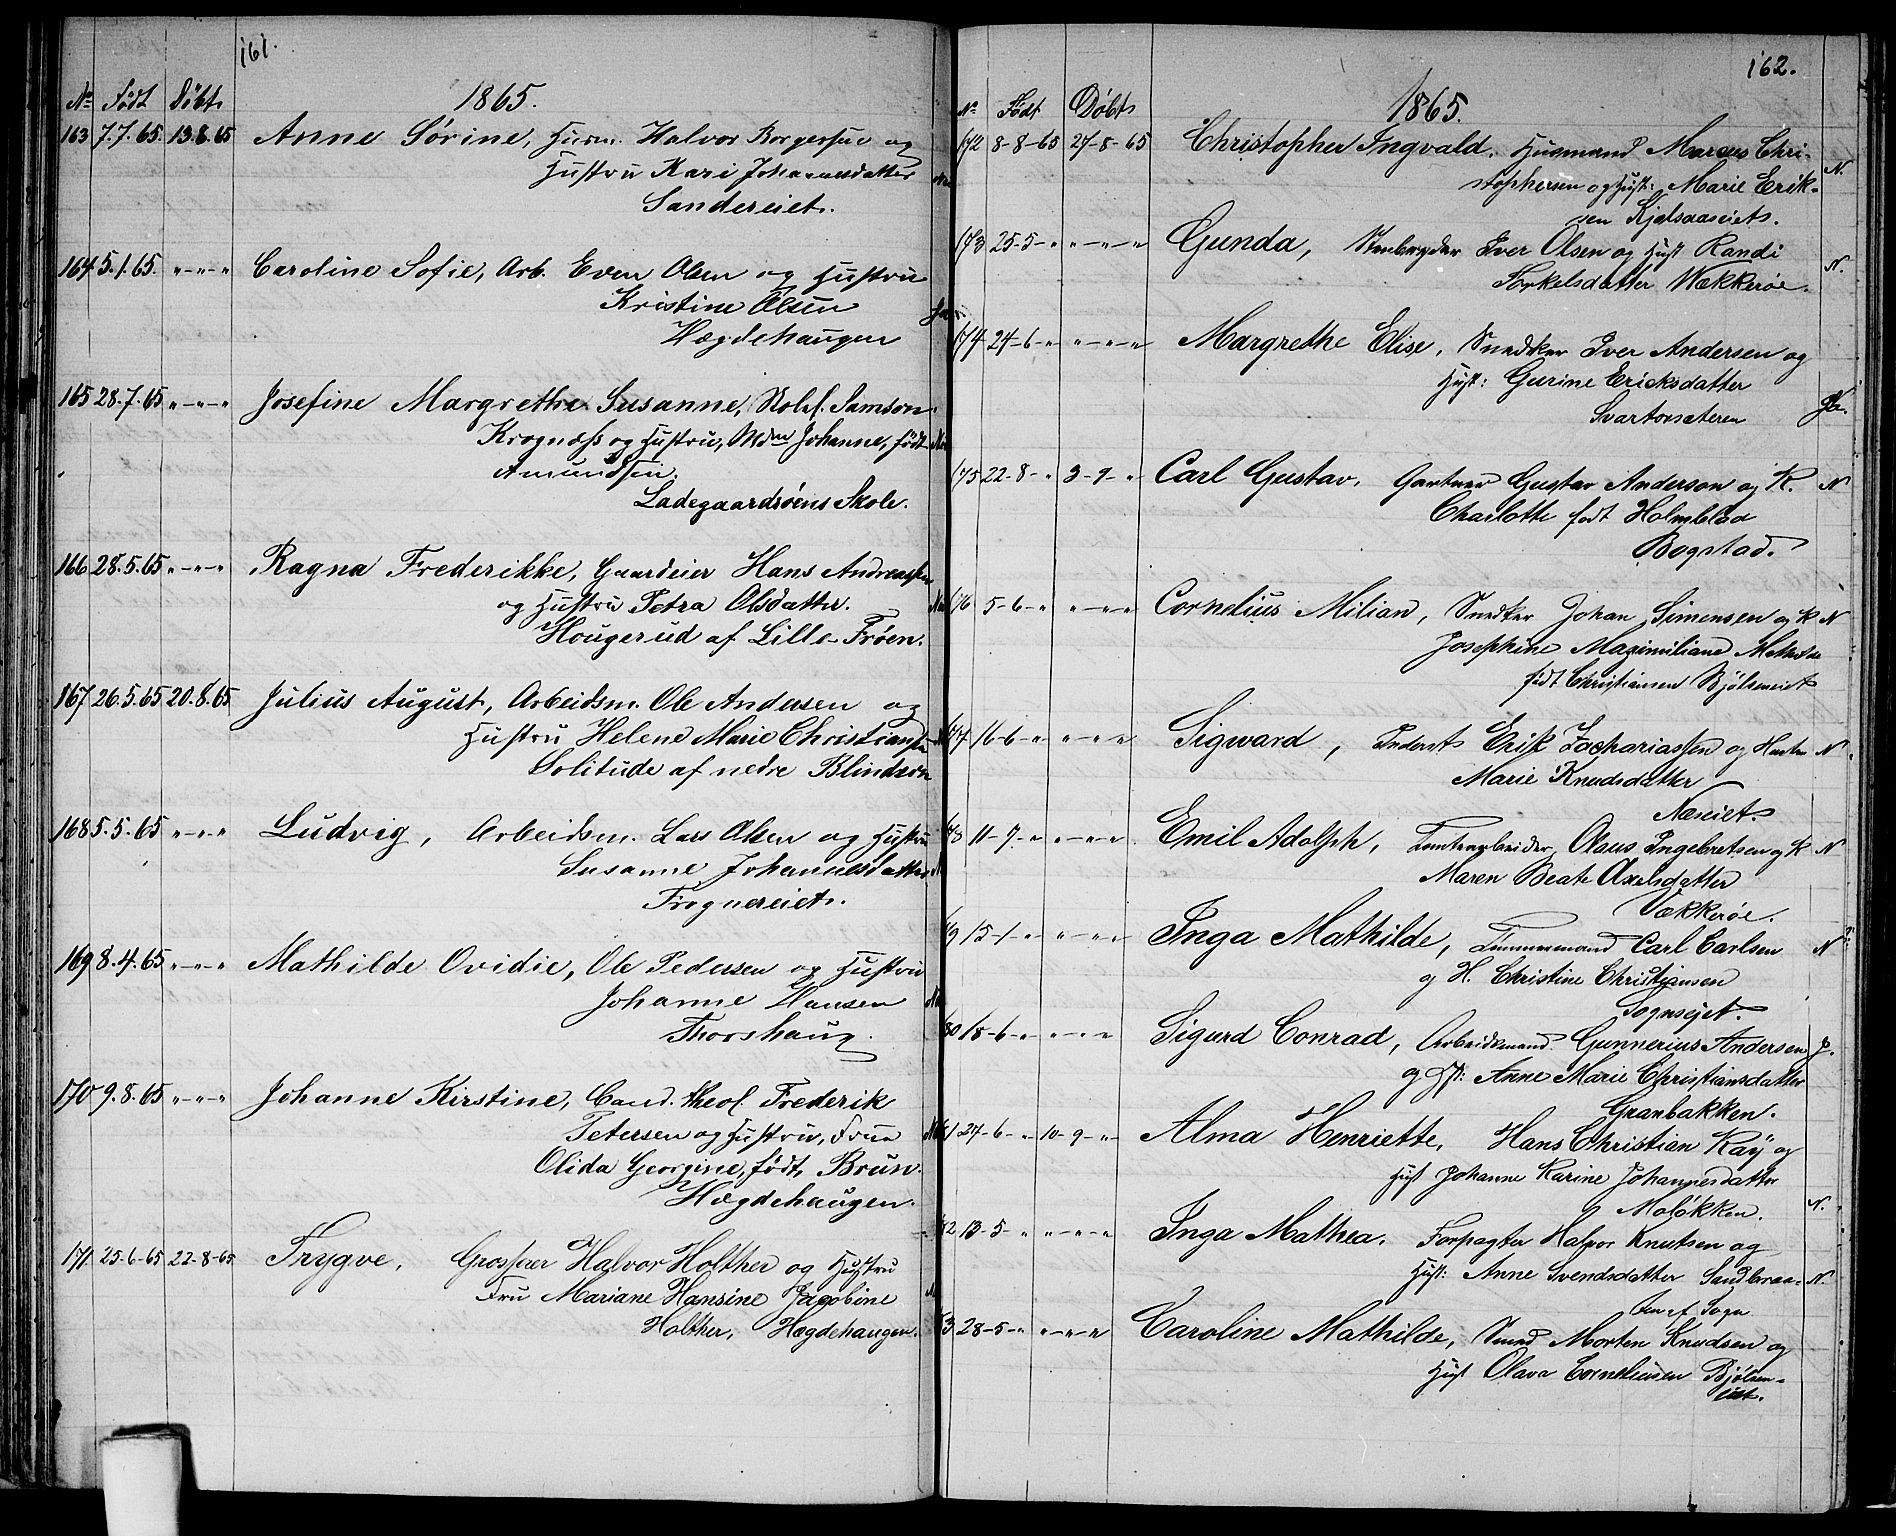 161.
Nº Født Döbt 1865.
163 7.7.65. 13.8.65 Anne Sørine, Husm. Halvor Borgersen og
Hustru Kari Johannesdatter
Sandereiet.
164 5.1.65. " - " - " Caroline Sofie, Arb. Even Olsen og Hustru
Kristine Olsen
Hægdehaugen
165 28.7.65 " - " - " Josefine Margrethe Susanne, Skolel. Samson
Krognæss og Hustru, Mdm Johanne, født
Amundsen.
Ladegaardsøens Skole.
166 28.5.65 " - " - " Ragna Frederikke, Gaardeier Hans Andreassen
og Hustru Petra Olsdatter.
Hougerud af Lille-Frøen.
167 26.5.65 20.8.65 Julius August, Arbeidsm. Ole Andersen og
Hustru Helene Marie Christians
Solitude af nedre Blindern
168 5.5.65 " - " - " Ludvig, Arbeidsm. Lars Olsen og Hustru
Susanne Johannesdatter
Frognereiet.
169 8.4.65 " - " - " Mathilde Ovidie, Ole Pedersen og Hustru
Johanne Hansen
Thorshaug.
170 9.8.65 " - " - " Johanne Kirstine, Cand. theol. Frederik
Petersen og Hustru, Frue
Olida Georgine, født Brun.
Hægdehaugen.
171. 25-6-65 22-8-65. Trygve, Grosserer Halvor Holther og Hustru
Fru Mariane Hansine Jacobine
Holther, Hægdehaugen.
162.
Nº Født Döbt 1865.
172 8-8-65 27-8-65 Christopher Ingvald. Husmand Marcus Chri-
stophersen og Hust: Marie Erik- N.
sen Kjelsaaseiet.
173 25-5- " " - " - " Gunda, Stenbryder Iver Olsen og Hust Randi
Torkelsdatter Wækkerøe. N.
174 24-6- " " - " - " Margrethe Elise, Snedker Iver Andersen og
Hust: Gurine Ericksdatter
Svartorsæteren
175 22-8- " 3-9- " Carl Gustav. Gartner Gustav Anderson og K. N
Charlotte født Holmblad
Bogstad.
176 5-6- " " - " - " Cornelius Milian, Snedker Johan Simensen og K N
Josephine Maximiliane
født Christiansen Bjølseneiet
177 16-6- " " - " - " Sigward, Inderst Erik Zachariassen og Hustru N.
Marie Knudsdatter
Næseiet.
178 11-7- " " - " - " Emil Adolph, Tomtearbeider Olaus Ingebretsen og K N
Maren Beate Axelsdatter
Vækkerøe.
179 15-1- " " - " - " Inga Mathilde, Tømmermand Carl Carlsen N
og H. Christine Christiansen
Sognsejet.
180 18-6- " " - " - " Sigurd Conrad, Arbeidsmand Gunnerius Andersen J.
og Hst: Anne Marie Christiansdatter
Granbakken.
181 27-6- " 10-9- " Alma Henriette, Hans Christian Kaÿ og
Hust Johanne Karine Johannesdatter
Moløkken. N.
182 13-5- " " - " - " Inga Mathea. Forpagter Halvor Knutsen og
Hust: Anne Svendsdatter Sandbraa- N.
ten af Sogn
183 28-5- " " - " - " Caroline Mathilde, Smed Morten Knudsen og
Hust Olava Corneliussen Bjølsen-
eiet.